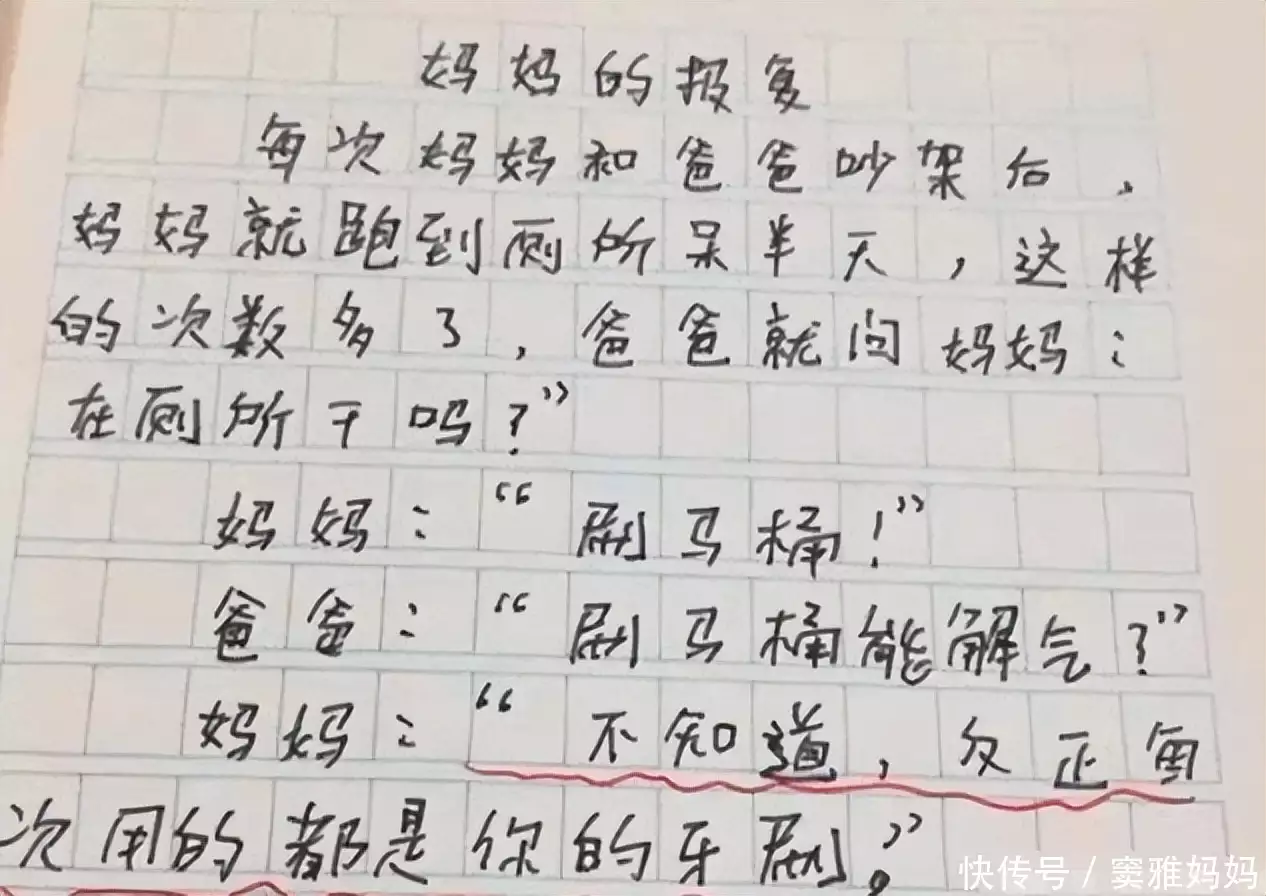 妈妈的报复
每次妈妈和爸爸吵架后，
妈妈就跑到厕所呆半天，这样
的次数多了，爸爸就问妈妈：
在厕所干吗？”
妈妈：“刷马桶！”
爸爸：“刷马桶能解气？”
妈妈：“不知道，反正每
次用的都是你的牙刷。”
快传号/窦雅妈妈